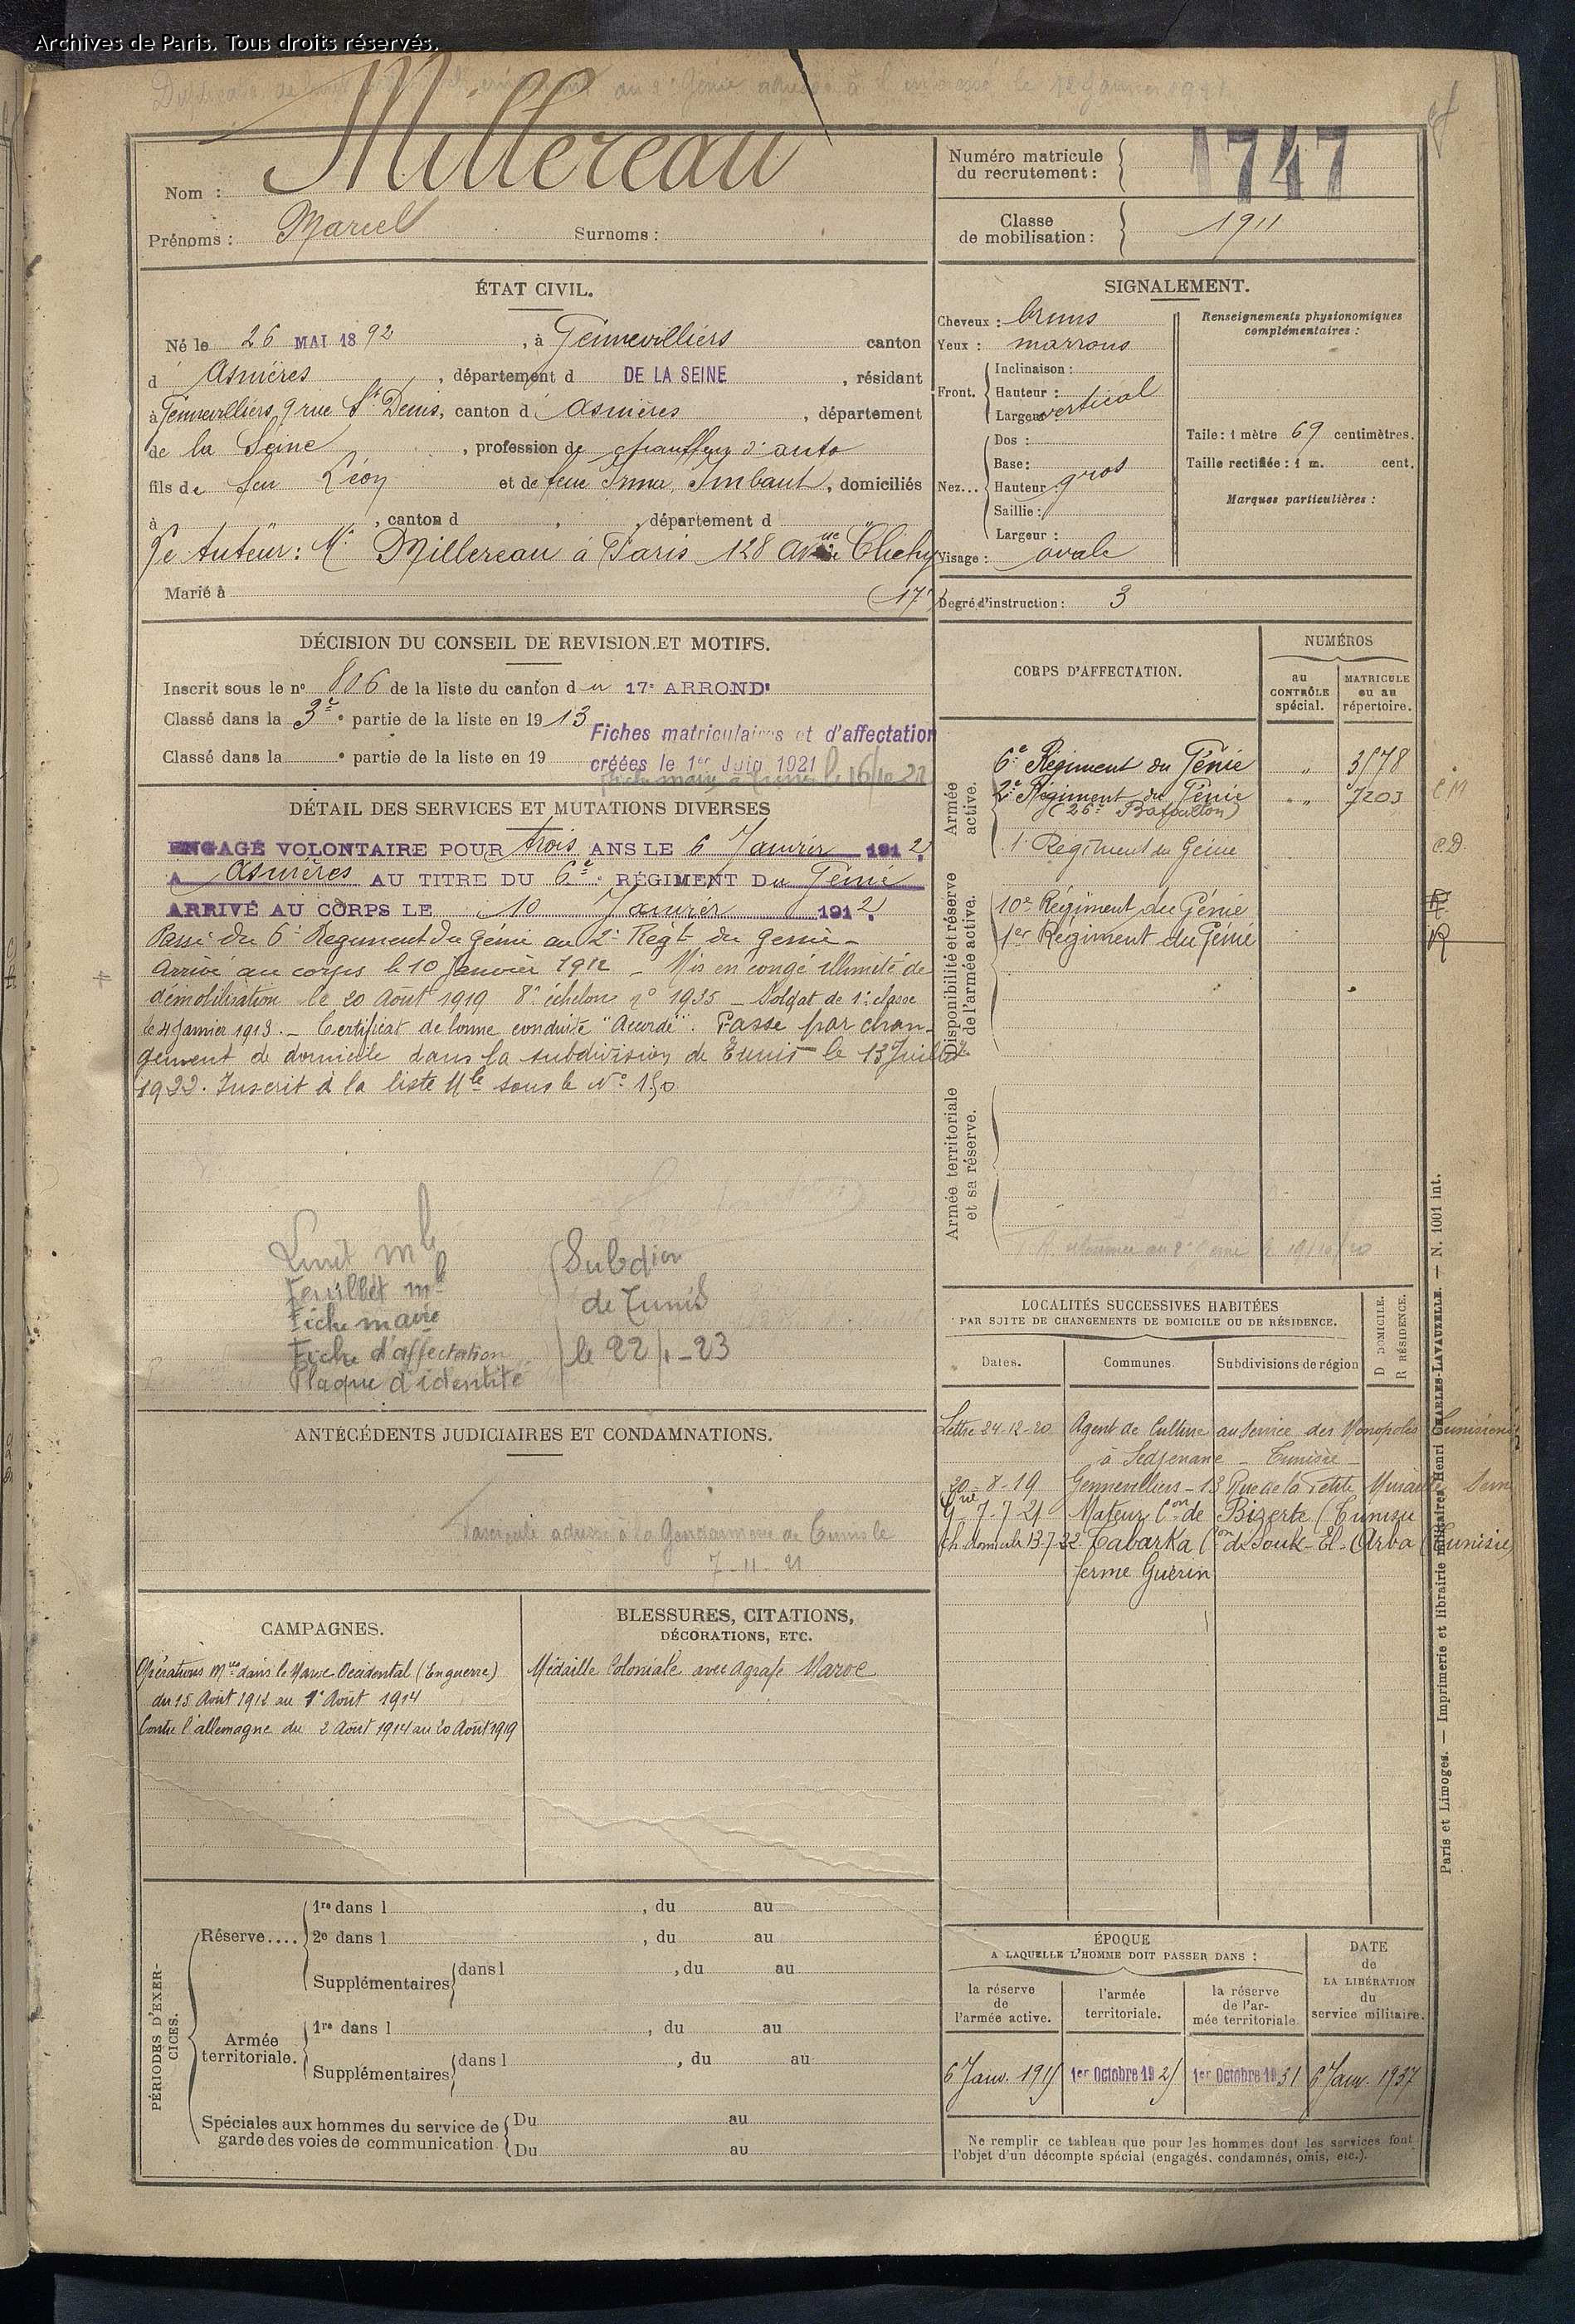 Archives de Paris. Tous droits réservés.
Nom : Millereau
Prénoms : Marcel Surnoms :
Numéro matricule du recrutement : 1747
Classe de mobilisation : 1911
ÉTAT CIVIL.
Né le 26 MAI 1892, à Gennevilliers canton
d'Asnières, département d DE LA SEINE, résidant
à Gennevilliers, 9 rue St Denis, canton d'Asnières, département
de la Seine, profession de chauffeur d'auto
fils de feu Léon et de feue Irma, Imbault, domiciliés
à , canton d , département d
Tuteur : Mr Millereau à Paris 128 avnue Clichy
Marié à (17e)
SIGNALEMENT.
Cheveux : bruns
Yeux : marrons
Front. Inclinaison :
Hauteur : vertical
Largeur
Nez... Dos :
Base :
Hauteur : gros
Saillie :
Largeur :
Visage : ovale
Renseignements physionomiques complémentaires :
Taille : 1 mètre 69 centimètres.
Taille rectifiée : 1 m. cent.
Marques particulières :
Degré d'instruction : 3
DÉCISION DU CONSEIL DE REVISION ET MOTIFS.
Inscrit sous le no 806 de la liste du canton du 17e ARRONDt
Classé dans la 3e partie de la liste en 1913
Classé dans la e partie de la liste en 19
Fiches matriculaires et d'affectation
créées le 1er Juin 1921
le 16/10 22
DÉTAIL DES SERVICES ET MUTATIONS DIVERSES
ENGAGÉ VOLONTAIRE POUR trois ANS LE 6 Janvier 1912.
A Asnières AU TITRE DU 6e RÉGIMENT Du Génie
ARRIVÉ AU CORPS LE 10 Janvier 1912.
Passé du 6e Régiment du génie au 2e Régt du génie -
Arrivé au corps le 10 Janvier 1912 - Mis en congé illimité de
démobilisation le 20 Août 1919 8e échelon no 1935 - Soldat de 1e classe
le 4 Janvier 1913. - Certificat de bonne conduite "Accordé". Passé par chan-
gement de domicile dans la subdivision de Tunis le 13 Juillet
1922. Inscrit à la liste Mle sous le No 150
Livret mle
Feuillet ml
Fiche maire
Fiche d'affectation
Plaque d'identité
Subdion
de Tunis
le 22-1-23
CORPS D'AFFECTATION.
NUMÉROS
au CONTRÔLE spécial.
MATRICULE ou au répertoire.
Armée active.
6e Régiment du Génie " 3578
2e Régiment du Génie " 7203
(26e Bataillon)
1 Régiment du Génie
Disponibilité et réserve de l'armée active.
10e Régiment du Génie
1er Régiment du Génie
Armée territoriale et sa réserve.
ANTÉCÉDENTS JUDICIAIRES ET CONDAMNATIONS.
adressé à la Gendarmerie de Tunis le
7-11-21
LOCALITÉS SUCCESSIVES HABITÉES
PAR SUITE DE CHANGEMENTS DE DOMICILE OU DE RÉSIDENCE.
Dates. Communes. Subdivisions de région D DOMICILE. R RÉSIDENCE.
Lettre 24-12-20 Agent de Culture au Service des Monopoles Tunisiens
à Sedjenane - Tunisie -
20-8-19 Gennevilliers - 13 Rue de la Petite Muraille Seine
7-7-21 Mateur Con de Bizerte (Tunisie
Ch. domicile 13-7-22 Tabarka Con de Souk-El-Arba (Tunisie)
ferme Guérin
CAMPAGNES.
Opérations mres dans le Maroc Occidental (En guerre)
du 15 Août 1912 au 1er Août 1914
Contre l'allemagne du 2 Août 1914 au 20 Août 1919
BLESSURES, CITATIONS,
DÉCORATIONS, ETC.
Médaille Coloniale avec agrafe Maroc
PÉRIODES D'EXERCICES.
Réserve.... 1re dans l , du au
2e dans l , du au
Supplémentaires dans l , du au
Armée territoriale. 1re dans l , du au
Supplémentaires dans l , du au
Spéciales aux hommes du service de garde des voies de communication Du au
Du au
ÉPOQUE
A LAQUELLE L'HOMME DOIT PASSER DANS :
la réserve de l'armée active.
l'armée territoriale.
la réserve de l'armée territoriale.
DATE de LA LIBÉRATION du service militaire.
6 Janv. 1915 1er Octobre 1925 1er Octobre 1931 6 Janv. 1937
Ne remplir ce tableau que pour les hommes dont les services font
l'objet d'un décompte spécial (engagés, condamnés, omis, etc.).
Paris et Limoges. — Imprimerie et librairie militaires Henri CHARLES-LAVAUZELLE. — N. 1001 int.